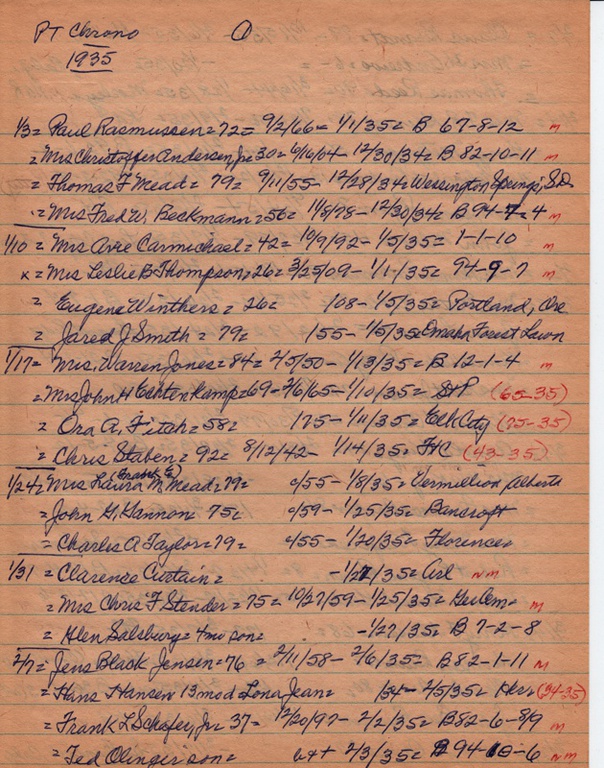 PT Chrono
1935
1/3 = Paul Rasmussen = 72 = 9/2/66 = 1/1/35 = B 67-8-12 m
= Mrs Christoffer Andersen, Jr = 30 = 6/16/04 - 12/30/34 = B 82-10-11 m
= Thomas F Mead = 79 = 9/11/55 - 12/28/34 = Wessington Springs, S.D.
= Mrs Fred W. Beckmann = 56 = 11/8/78 - 12/30/34 = B 94-7-4 m
1/10 = Mrs Avie Carmichael = 42 = 10/9/92 - 1/5/35 = 1-1-10 m
x = Mrs Leslie B Thompson = 26 = 3/25/09 - 1/1/35 = 94-9-7 m
= Eugene Winthers = 26 = 108 - 1/5/35 = Portland, Ore
= Jared J Smith = 79 = 155 - 1/5/35 = Omaha Forest Lawn
1/17 = Mrs. Warren Jones = 84 = 2/5/50 - 1/13/35 = B 12-1-4 m
= Mrs John H Echtenkamp = 69 - 2/6/65 - 1/10/35 = (65-35)
= Ora A. Fitch = 58 = 175 - 1/11/35 = Elk City (75-35)
= Chris Staben = 92 = 8/12/42 - 1/14/35 = FHC (43-35)
1/24 = Mrs Laura M. Mead = 79 = c/55 - 1/8/35 = Vermillion Alberta
= John G. Gannon = 75 = c/59 - 1/25/35 = Bancroft
= Charles A Taylor = 79 = c/55 - 1/20/35 = Florence
1/31 = Clarence Curtain = /35 = Arl nm
= Mrs Chris F Stender = 75 = 10/27/59 - 1/25/35 = m
= Alen Salsbury = 4mo son = - 1/27/35 = B 7-2-8
2/7 = Jens Blask Jensen = 76 = 2/11/58 - 2/6/35 = B 82-1-11 m
= Hans Hansen 13 mo d Lona Jean = /34 - 2/5/35 = Her (34-35)
= Frank L Schafer, Jr = 37 = 12/20/97 - 2/2/35 = B 82-6-8/9 m
= Ted Olinger son = 2/3/35 = B 94-10-6 nm